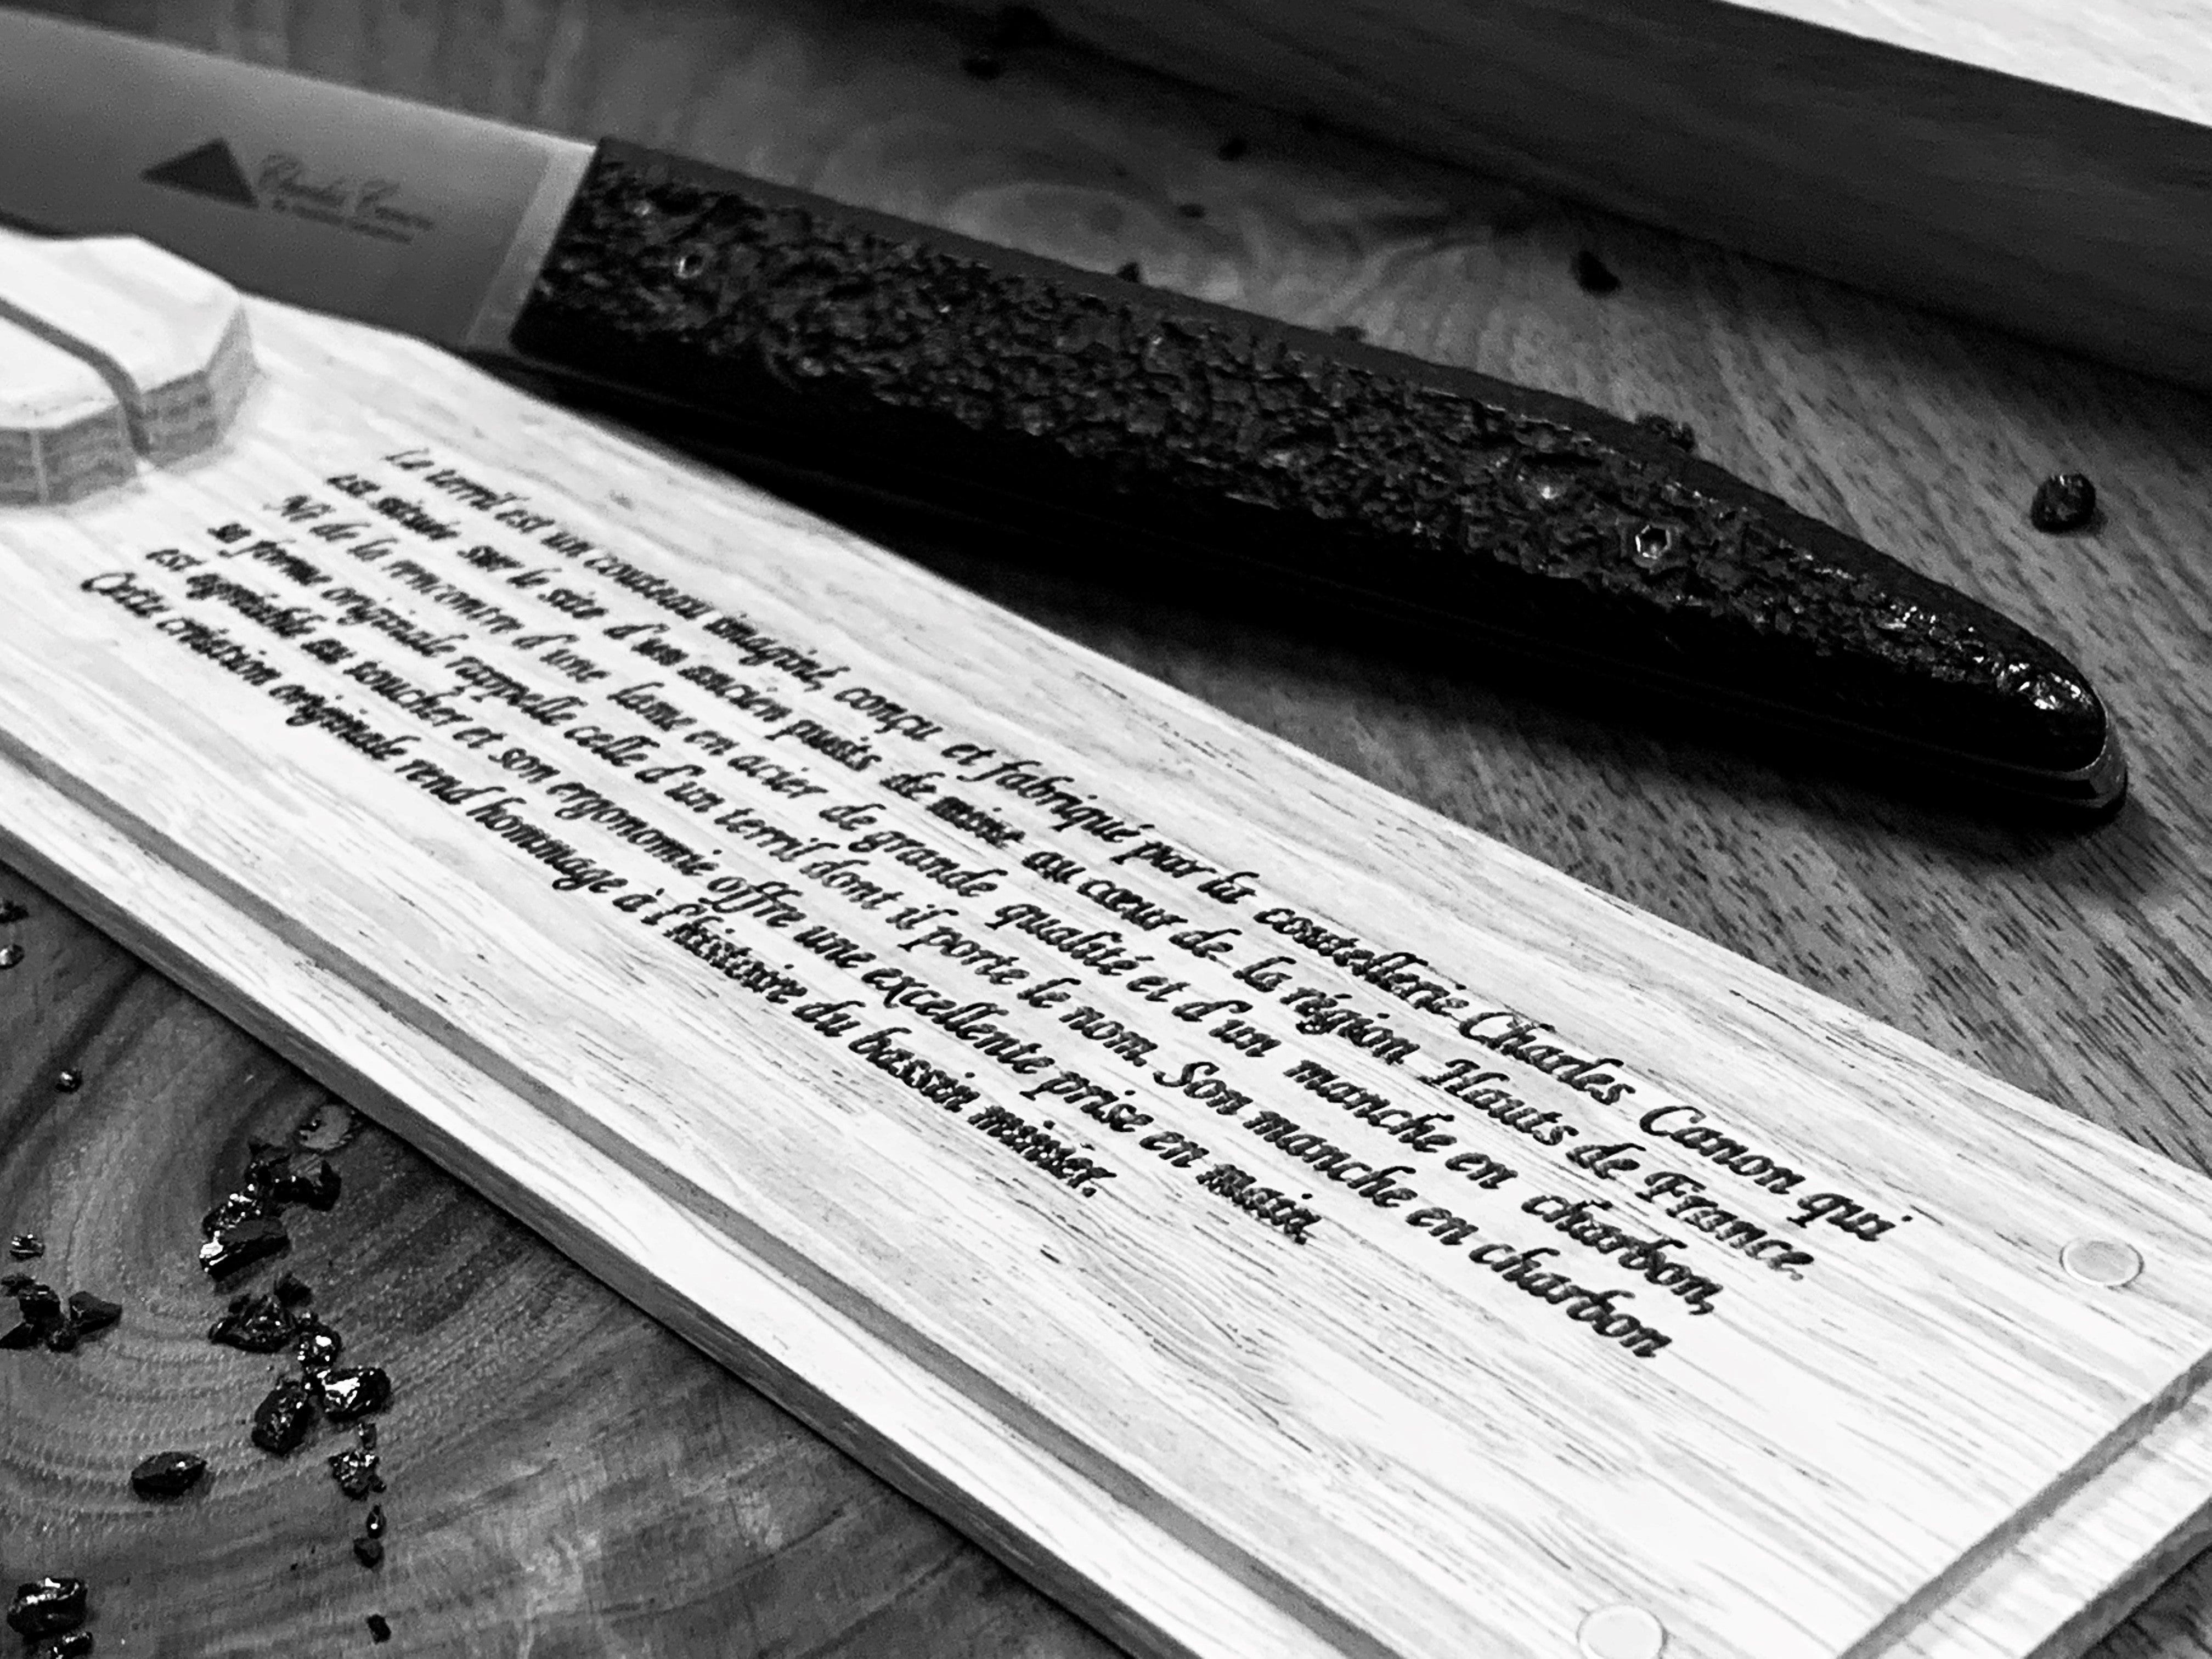 Charles Canon
Le terril est un couteau imaginé, conçu et fabriqué par la coutellerie Charles Canon qui
est située sur le site d'un ancien puits de mine au cœur de la région Hauts de France.
Né de la rencontre d'une lame en acier de grande qualité et d'un manche en charbon,
sa forme originale rappelle celle d'un terril dont il porte le nom. Son manche en charbon
est agréable au toucher et son ergonomie offre une excellente prise en main.
Cette création originale rend hommage à l'histoire du bassin minier.